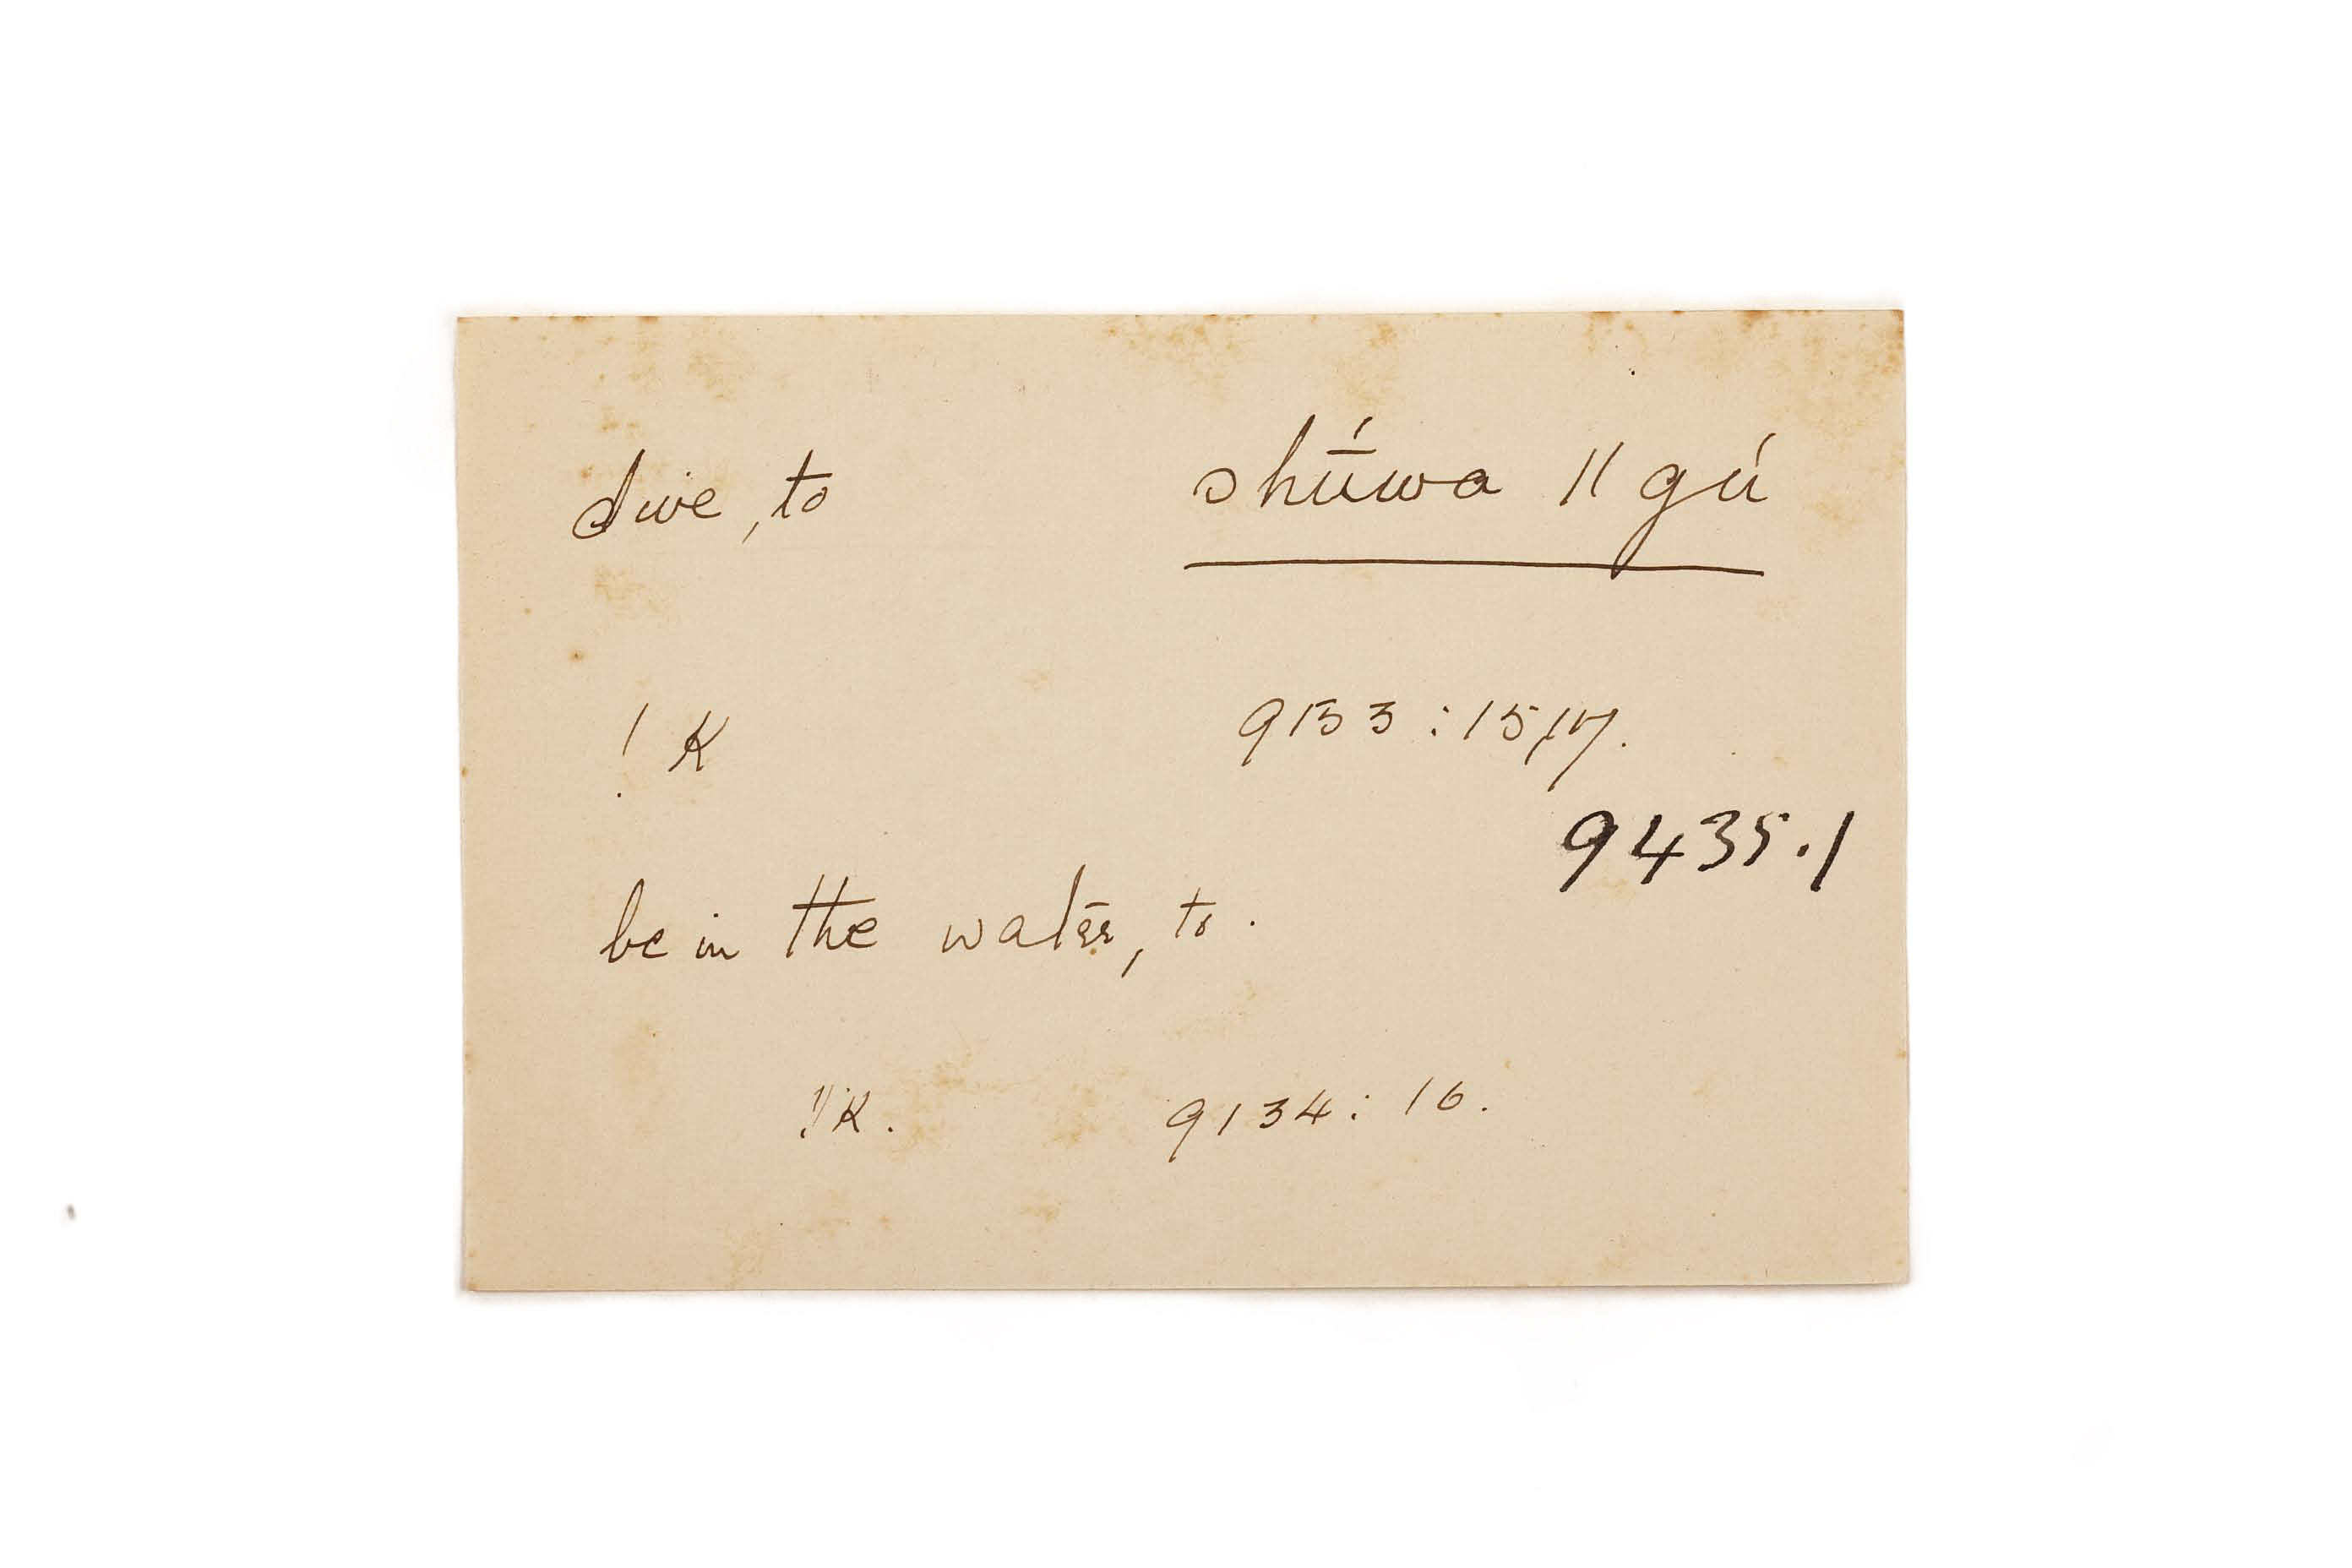 dive, to shū́wa ǁ gú
! K 9133 : 15/17.
9435.1
be in the water, to.
!K. 9134 : 16.